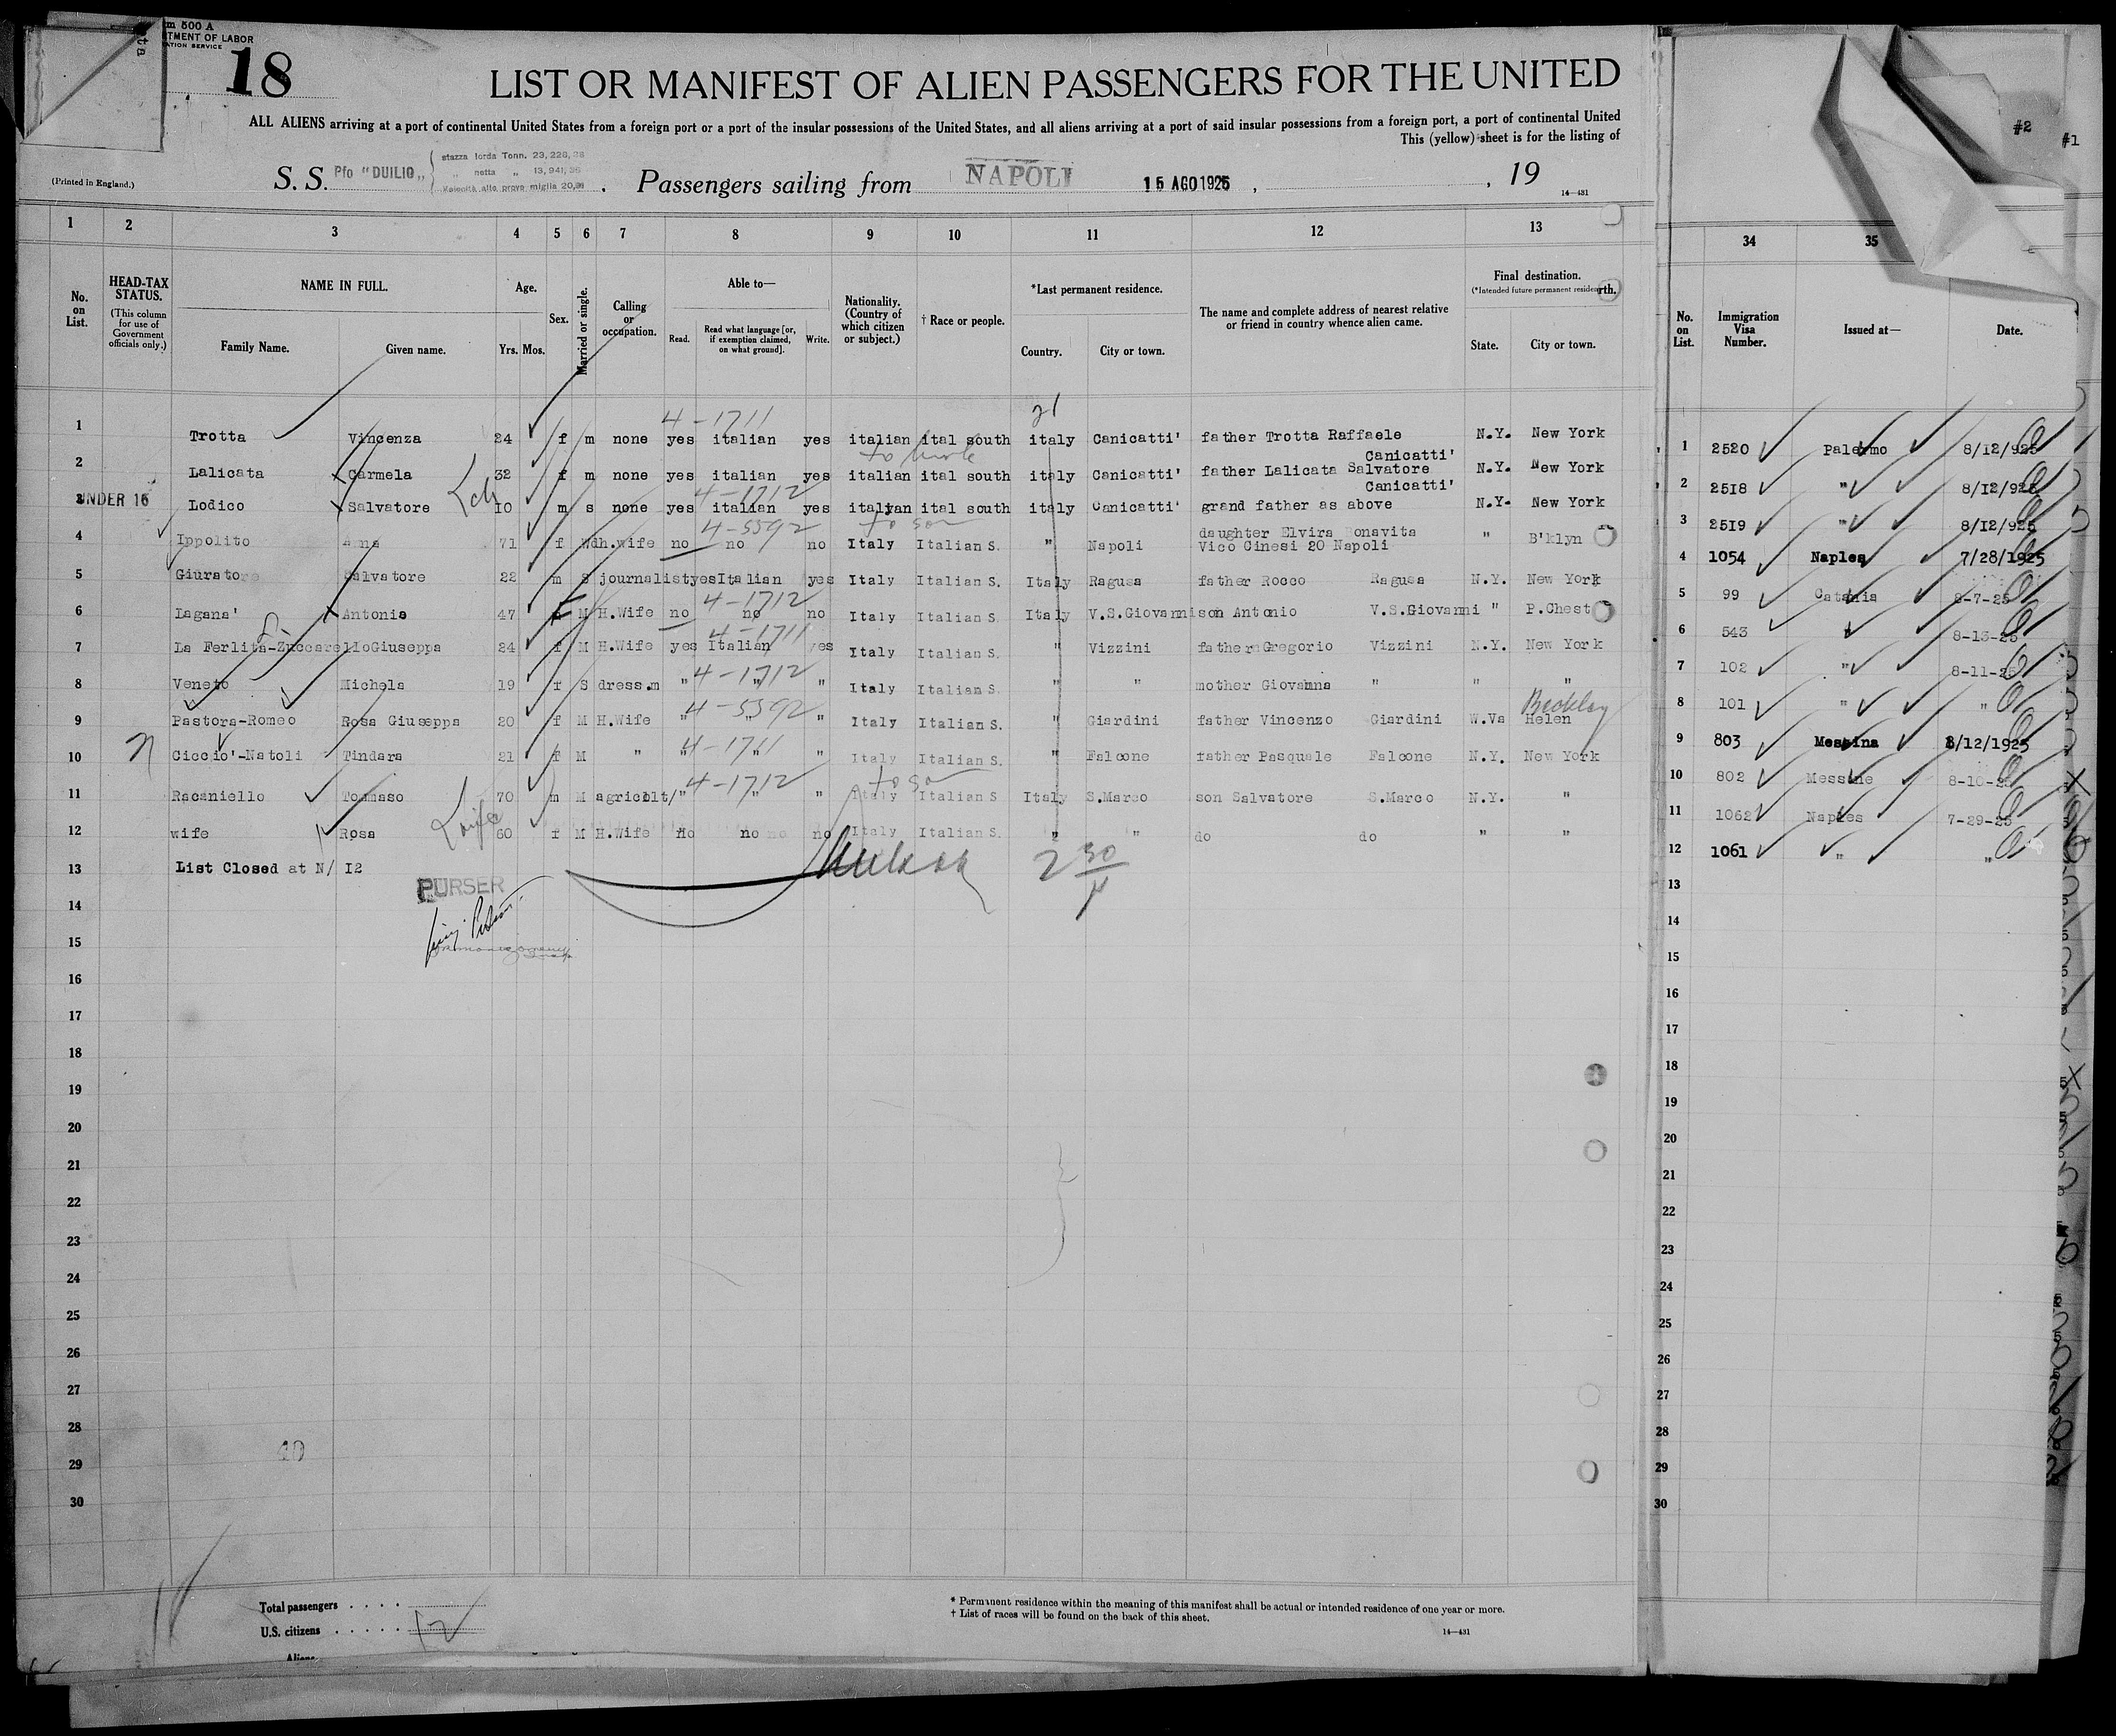 m 500 A
TMENT OF LABOR
ATION SERVICE
18
#2
#1
LIST OR MANIFEST OF ALIEN PASSENGERS FOR THE UNITED
ALL ALIENS arriving at a port of continental United States from a foreign port or a port of the insular possessions of the United States, and all aliens arriving at a port of said insular possessions from a foreign port, a port of continental United
This (yellow) sheet is for the listing of
(Printed in England.)
S. S. Pfo "DUILIO" stazza lorda Tonn. 23,228,
" netta " 13,941,
miglia 20,
Passengers sailing from NAPOLI 15 AGO 1925, , 19
14—431
1 2 3 4 5 6 7 8 9 10 11 12 13 34 35
No. on List.
HEAD-TAX STATUS.
(This column for use of Government officials only.)
NAME IN FULL.
Family Name. Given name.
Age.
Yrs. Mos.
Sex.
Married or single.
Calling or occupation.
Able to—
Read. Read what language [or, if exemption claimed, on what ground]. Write.
Nationality. (Country of which citizen or subject.)
† Race or people.
*Last permanent residence.
Country. City or town.
The name and complete address of nearest relative or friend in country whence alien came.
Final destination.
(*Intended future permanent residen
rth.
State. City or town.
No. on List.
Immigration Visa Number.
Issued at—
Date.
4-1711 21
1 Trotta Vincenza 24 f m none yes italian yes italian ital south italy Canicatti' father Trotta Raffaele Canicatti' N.Y. New York 1 2520 Palermo 8/12/925
2 Lalicata Carmela 32 f m none yes italian yes italian ital south italy Canicatti' father Lalicata Salvatore Canicatti' N.Y. New York 2 2518 " 8/12/925
4-1712
UNDER 16 3 Lodico Salvatore 10 m s none yes italian yes italyan ital south italy Canicatti' grand father as above N.Y. New York 3 2519 " 8/12/925
4-5592 to son
4 Ippolito Anna 71 f Wd h.wife no no no Italy Italian S. " Napoli daughter Elvira Bonavita Vico Cinesi 20 Napoli " B'klyn 4 1054 Naples 7/28/1925
5 Giurato Salvatore 22 m S journalist yes Italian yes Italy Italian S. Italy Ragusa father Rocco Ragusa N.Y. New York 5 99 Catania 8-7-25
4-1712
6 Lagana' Antonia 47 F M H.Wife no no no Italy Italian S. Italy V.S.Giovanni son Antonio V.S.Giovanni " P.Chest 6 543 8-13-25
4-1711
7 La Ferlita-Zuccarello Giuseppa 24 f M H.Wife yes Italian yes Italy Italian S. " Vizzini father Gregorio Vizzini N.Y. New York 7 102 " 8-11-25
4-1712
8 Veneto Michela 19 f S dress.m " " " Italy Italian S. " " mother Giovanna " " " 8 101 " "
4-5592 Beckley
9 Pastora-Romeo Rosa Giuseppa 20 f M H.Wife " " " Italy Italian S. " Giardini father Vincenzo Giardini W.Va Helen 9 803 Messina 8/12/1925
4-1711
10 Ciccio'-Natoli Tindara 21 f M " " " " Italy Italian S. " Falcone father Pasquale Falcone N.Y. New York 10 802 Messina 8-10-25
4-1712 to son
11 Racaniello Tommaso 70 m M agricolt/ " " " Italy Italian S Italy S.Marco son Salvatore S.Marco N.Y. " 11 1062 Naples 7-29-25
12 wife Rosa 60 f M H.Wife no no no Italy Italian S. " " do do " " 12 1061 " "
13 List Closed at N/ 12 13
PURSER
2 30
14 14
15 15
16 16
17 17
18 18
19 19
20 20
21 21
22 22
23 23
24 24
25 25
26 26
27 27
28 28
40
29 29
30 30
Total passengers . . . .
U.S. citizens . . . . . 12
Aliens
* Permanent residence within the meaning of this manifest shall be actual or intended residence of one year or more.
† List of races will be found on the back of this sheet.
14—431